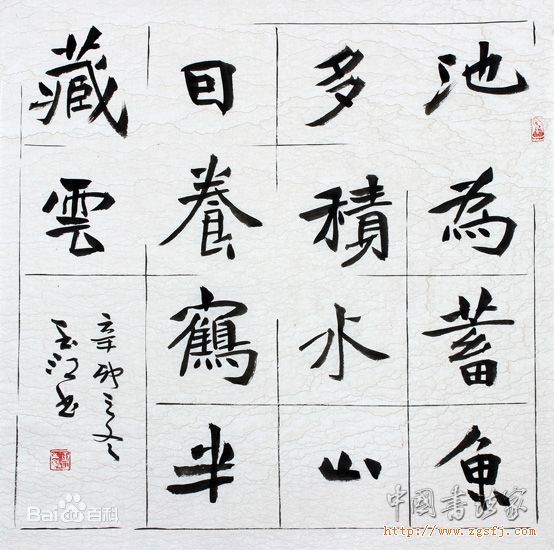 池为蓄鱼
多積水山
因養鶴半
藏雲
辛卯之冬
玉江书
Bai百科
中国书法家
http://www.zgsfj.com